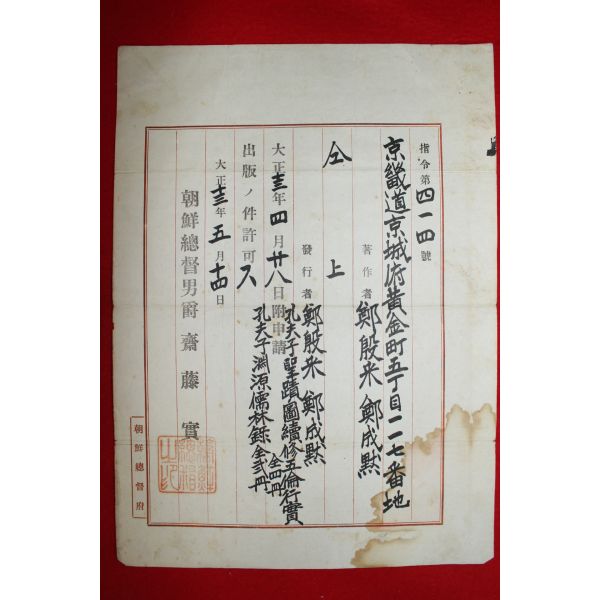 指令第四一四號
京畿道京城府黃金町五丁目一一七番地
著作者 鄭殷采 鄭成默
仝上
發行者 鄭殷采 鄭成默
大正十三年四月廿八日附申請
孔夫子聖蹟圖續修五倫行實全四冊
孔夫子淵源儒林錄全弍冊
出版ノ件許可ス
大正十三年五月十四日
朝鮮總督男爵 齋藤實
朝鮮總督之印
朝鮮總督府